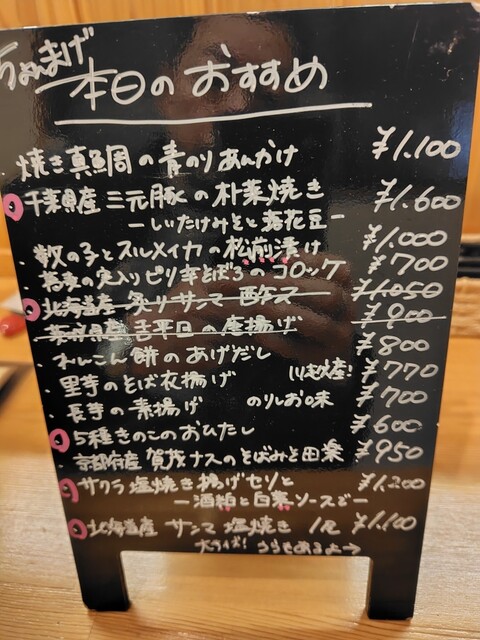 ちょんまげ
本日のおすすめ
・焼き真鯛の青のりあんかけ ¥1.100
千葉県産 三元豚の朴葉焼き ¥1.600
ーしいたけみそと落花豆ー
・数の子とスルメイカの松前漬け ¥1.000
・蕎麦の実入りピリ辛そぼろのコロッケ ¥700
北海道産 炙りサンマ酢〆 ¥1.050
茨城県産 舌平目の唐揚げ ¥900
・れんこん餅のあげだし ¥800
・里芋のそば衣揚げ ¥770
・長芋の素揚げ のりしお味 ¥700
5種きのこのおひたし ¥600
・京都府産 賀茂ナスのそばみそ田楽 ¥950
サクラ塩焼き揚げセリと ¥1.200
ー酒粕と白葉ソースでー
北海道産 サンマ塩焼き 1尾 ¥1.100
大サイズ! うらもあるよ→